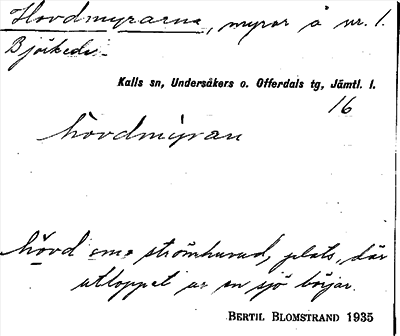 Hovdmyrarna, myrar å nr. 1.
Björkede.
Kalls sn, Undersåkers o. Offerdals tg, Jämtl. l.
16
hòvdmýran
hòvd strömhuvud, plats, där
utloppet ur en sjö börjar.
BERTIL BLOMSTRAND 1935